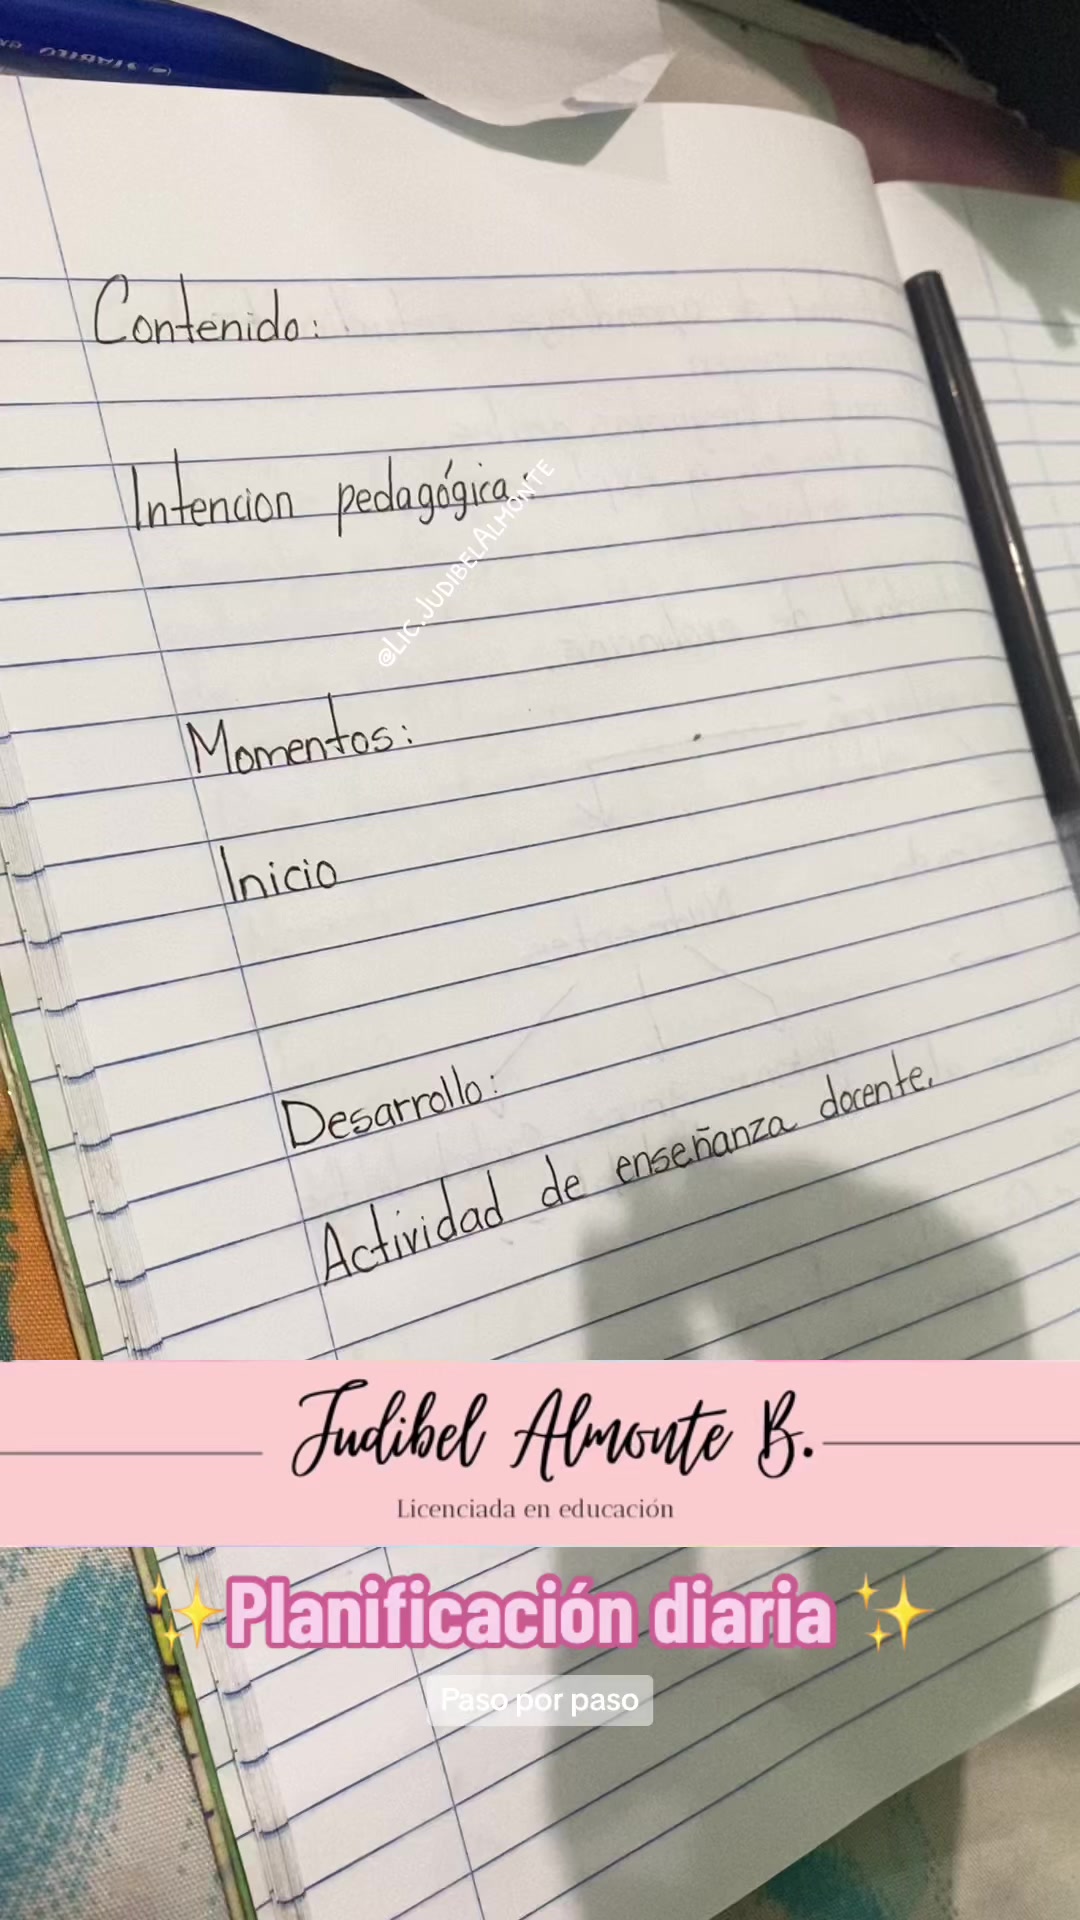 STABILO
Contenido:
Intencion pedagógica:
@Lic.JudibelAlmonte
Momentos:
Inicio
Desarrollo:
Actividad de enseñanza docente.
Judibel Almonte B.
Licenciada en educación
✨Planificación diaria ✨
Paso por paso